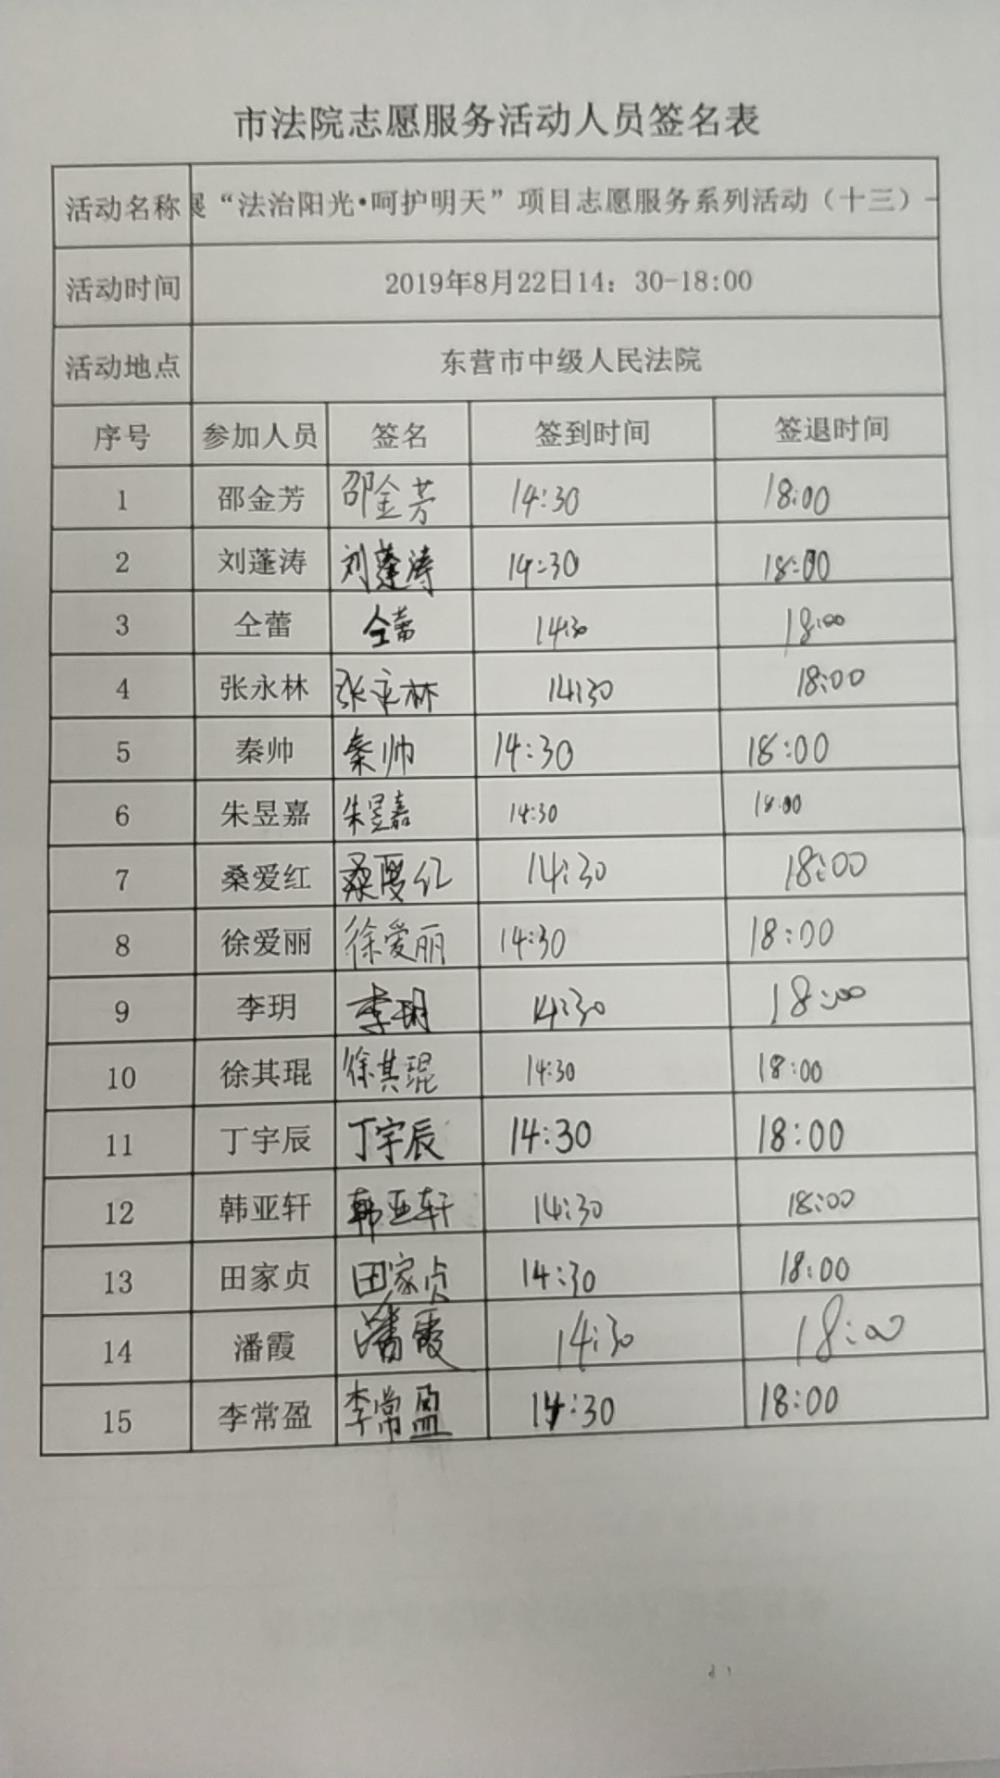 市法院志愿服务活动人员签名表
活动名称 展“法治阳光•呵护明天”项目志愿服务系列活动（十三）-
活动时间 2019年8月22日14：30-18:00
活动地点 东营市中级人民法院
序号 参加人员 签名 签到时间 签退时间
1 邵金芳 邵金芳 14:30 18:00
2 刘蓬涛 刘蓬涛 14:30 18:00
3 仝蕾 仝蕾 14:30 18:00
4 张永林 张永林 14:30 18:00
5 秦帅 秦帅 14:30 18:00
6 朱昱嘉 朱昱嘉 14:30 18:00
7 桑爱红 桑爱红 14:30 18:00
8 徐爱丽 徐爱丽 14:30 18:00
9 李玥 李玥 14:30 18:00
10 徐其琨 徐其琨 14:30 18:00
11 丁宇辰 丁宇辰 14:30 18:00
12 韩亚轩 韩亚轩 14:30 18:00
13 田家贞 田家贞 14:30 18:00
14 潘霞 潘霞 14:30 18:00
15 李常盈 李常盈 14:30 18:00